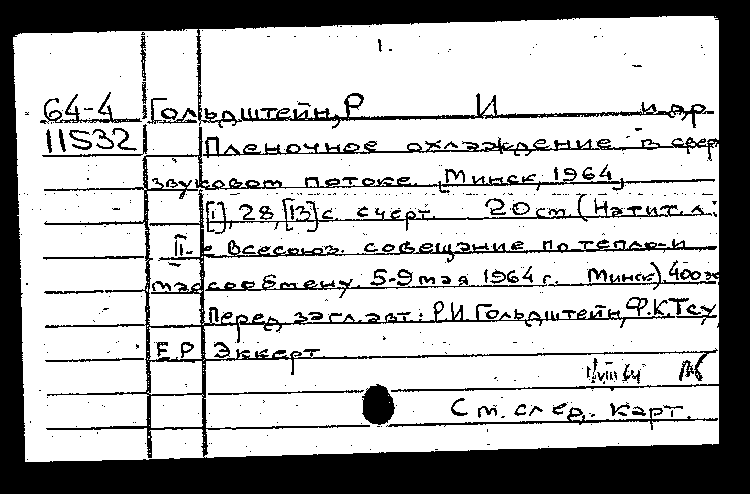 1.
64-4 Гольдштейн, Р И и др
11532 Пленочное охлаждение в сверх
звуковом потоке. [Минск, 1964]
[1], 28, [13] с. с черт. 20 см. (На тит. л.:
II-е Всесоюз. совещание по тепло-и
массообмену. 5-9 мая 1964 г. Минск). 400 э
Перед загл. авт.: Р.И. Гольдштейн, Ф.К. Тсу,
Е Р Эккерт
1/VIII 64
См. след. карт.